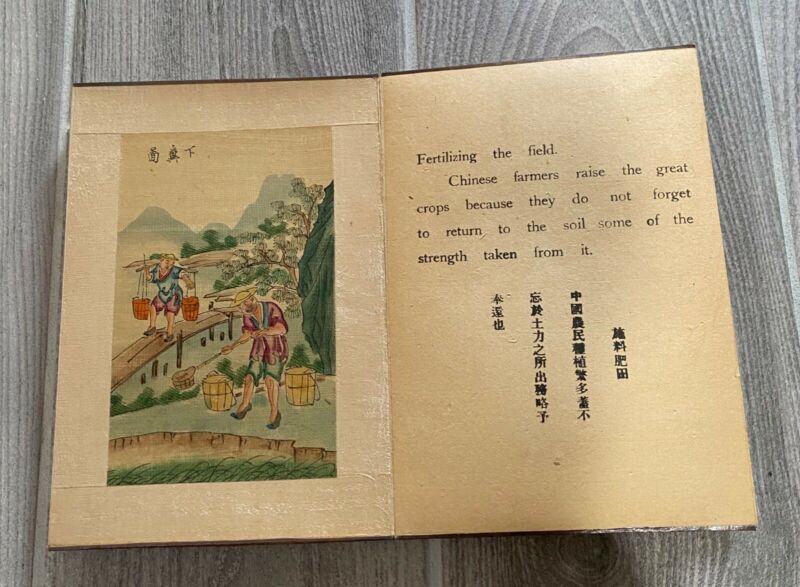 下糞圖
Fertilizing the field.
Chinese farmers raise the great
crops because they do not forget
to return to the soil some of the
strength taken from it.
施料肥田
中國農民種植繁多蓋不
忘於土力之所出務略予
奉還也